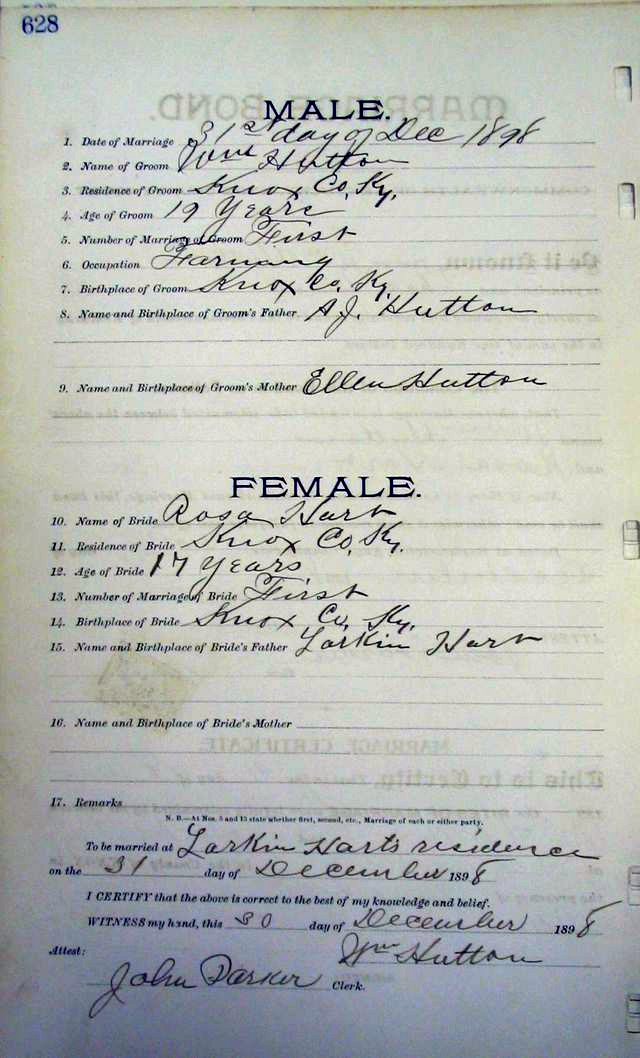 628
MALE.
1. Date of Marriage 31st day of Dec 1898
2. Name of Groom Wm Hutton
3. Residence of Groom Knox Co. Ky.
4. Age of Groom 19 Years
5. Number of Marriage of Groom First
6. Occupation Farming
7. Birthplace of Groom Knox Co. Ky.
8. Name and Birthplace of Groom's Father A J. Hutton
9. Name and Birthplace of Groom's Mother Ellen Hutton
FEMALE.
10. Name of Bride Rosa Hart
11. Residence of Bride Knox Co, Ky.
12. Age of Bride 17 Years
13. Number of Marriage of Bride First
14. Birthplace of Bride Knox Co, Ky.
15. Name and Birthplace of Bride's Father Larkin Hart
16. Name and Birthplace of Bride's Mother
17. Remarks
N. B.—At Nos. 5 and 13 state whether first, second, etc., Marriage of each or either party.
To be married at Larkin Harts residence
on the 31 day of December 1898
I CERTIFY that the above is correct to the best of my knowledge and belief.
WITNESS my hand, this 30 day of December 1898
Wm Hutton
Attest:
John Parker Clerk.